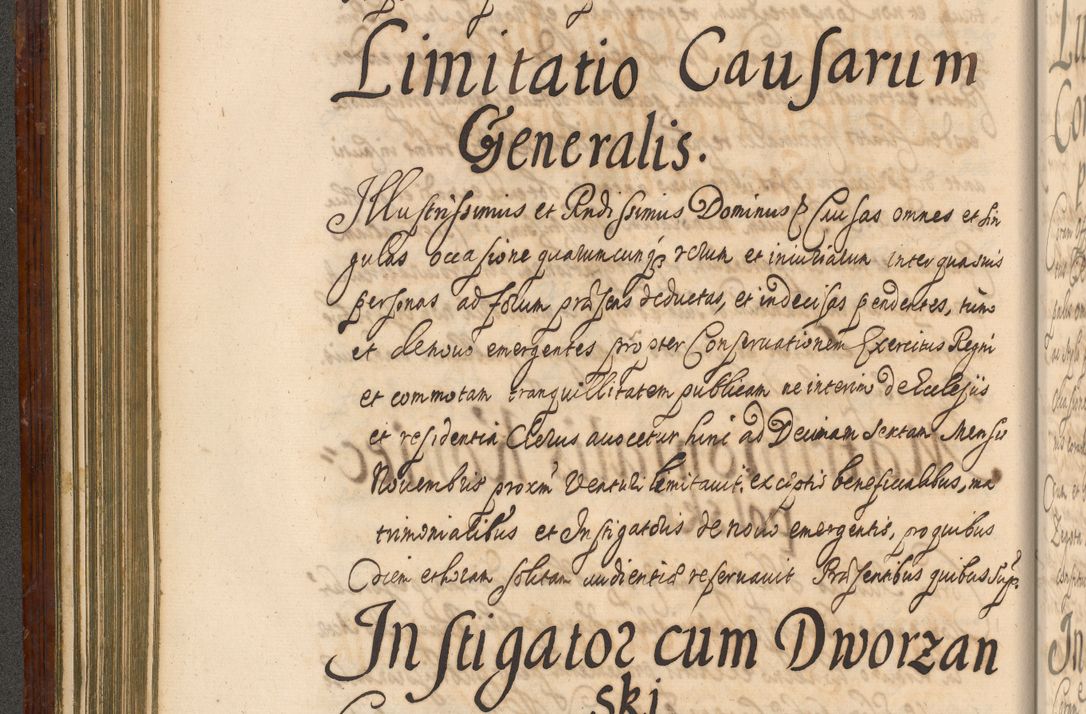 Limitatio Causarum
Generalis.
Illustrissimus et Rndissimus Dominus Causas omnes et sin
gulas occasione quarumcunq rerum et iniuriarum inter quasuis
personas ad forum præsens deductas, et indecisas pendentes, tum
et denouo emergentes propter Conseruationem Exercitus Regni
et commotam tranquillitatem publicam ne interim de Eccles̃ijs
et residentia Clerus auocetur hinc ad Decimam Sextam Mensis
Nouembris proxm̃ Venturi limitauit, exceptis beneficialibus, ma
trimonialibus et Instigatoris de nouo emergentis, pro quibus
Diem et horam solitam audientiæ reseruauit Præsentibus quibus sup̃.
Instigator cum Dworzan
ski